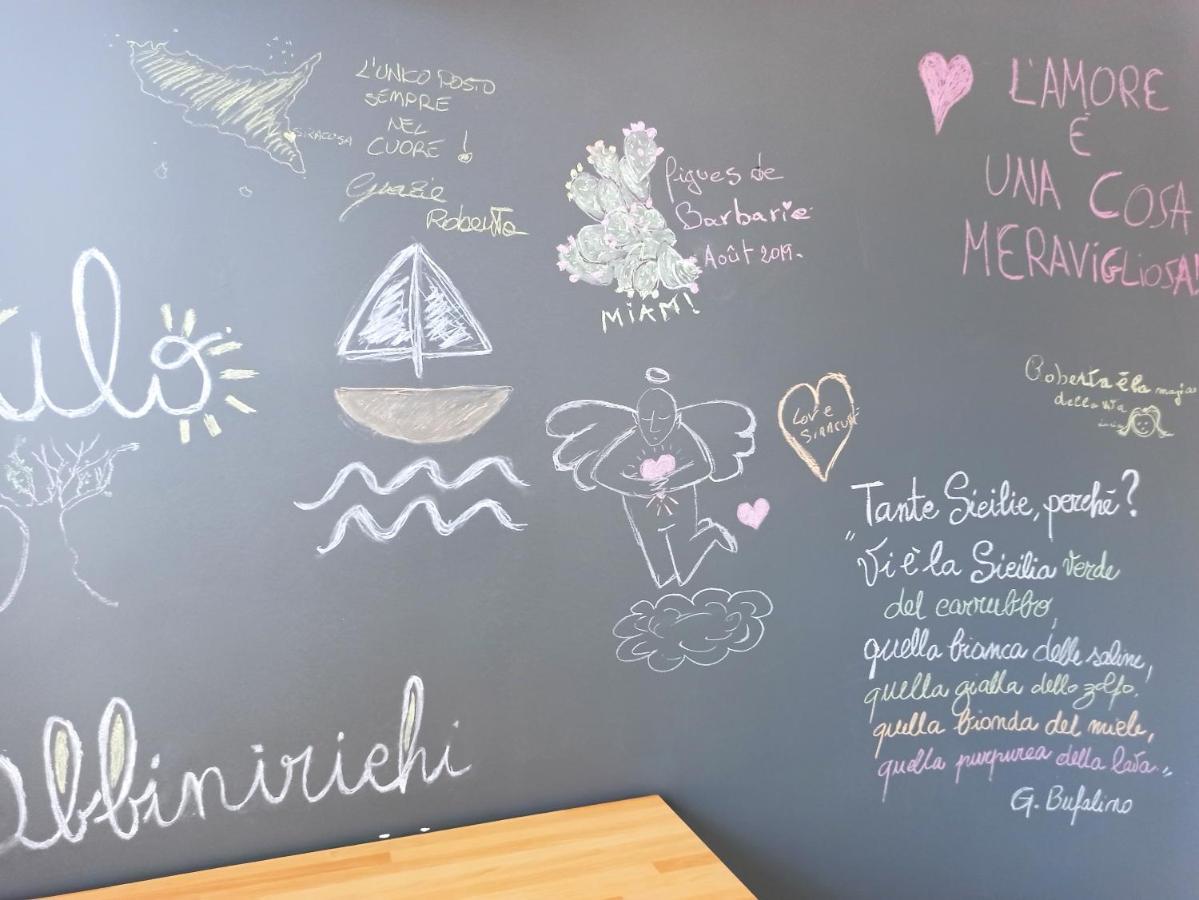 L'UNICO POSTO
SEMPRE
NEL
CUORE!
SIRACUSA
Grazie
Roberta
figues de
Barbarie
Août 2019.
MIAM!
L'AMORE
È
UNA COSA
MERAVIGLIOSA!
Love
Roberta è la magia
della vita
Tante Sicilie, perché?
"Vi è la Sicilia verde
del carrubbo,
quella bianca delle saline,
quella gialla dello zolfo,
quella bionda del miele,
quella purpurea della lava..."
G. Bufalino
abbinirichi